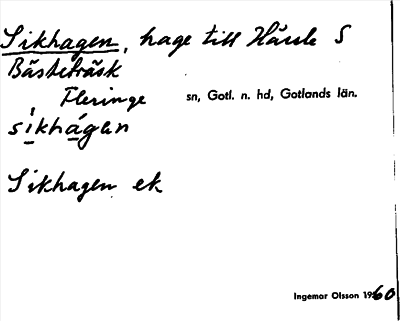 Sikhagen, hage till Hässle S
Bästeträsk
Fleringe sn, Gotl. n. hd, Gotlands län.
sikhagen
Sikhagen ek
Ingemar Olsson 1960